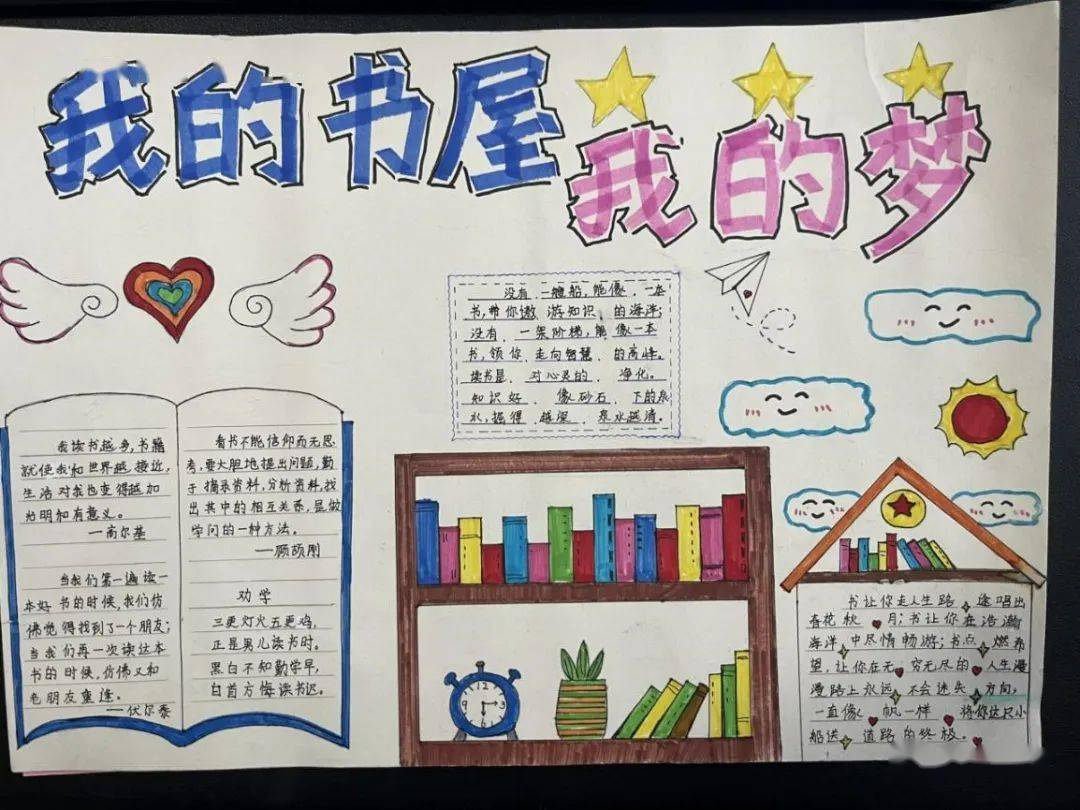 我的书屋
我的梦
没有一艘船,能像一本
书,带你遨游知识的海洋;
没有一条阶梯,能像一本
书,领你走向智慧的高峰。
读书是对心灵的净化。
知识好像砂石下的泉
水,掘得越深泉水越清。
我读书越多,书籍
就使我和世界越接近,
生活对我也变得越加
光明和有意义。
—高尔基
当我们第一遍读一
本好书的时候,我们仿
佛觉得找到了一个朋友;
当我们再一次读这本
书的时候,仿佛又和
老朋友重逢。
—伏尔泰
看书不能信仰而无思
考,要大胆地提出问题,勤
于摘录资料,分析资料,找
出其中的相互关系,是做
学问的一种方法。
—顾颉刚
劝学
三更灯火五更鸡,
正是男儿读书时。
黑白不知勤学早,
白首方悔读书迟。
12
3
书让你走人生路途唱出
春花秋月;书让你在浩瀚
海洋中尽情畅游;书点燃希
望,让你在无穷无尽的人生漫
漫路上永远不会迷失方向,
一直像帆一样将你这只小
船送道路的终极。